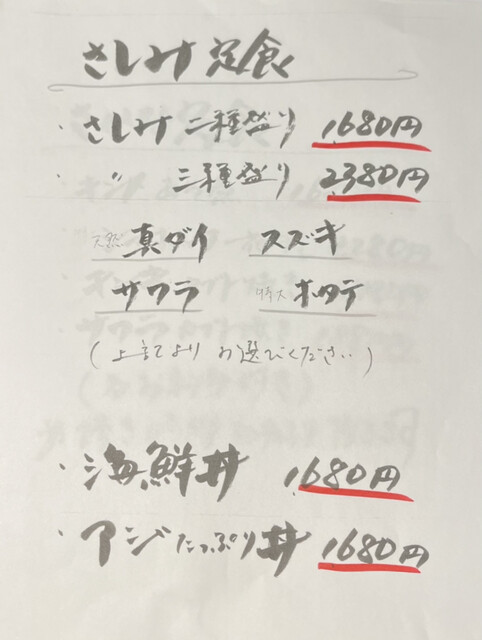 さしみ定食
・さしみ二種盛り 1,680円
・ 〃 三種盛り 2,380円
天然真ダイ スズキ
サワラ 特大ホタテ
(上記よりお選びください)
・海鮮丼 1,680円
・アジたっぷり丼 1,680円